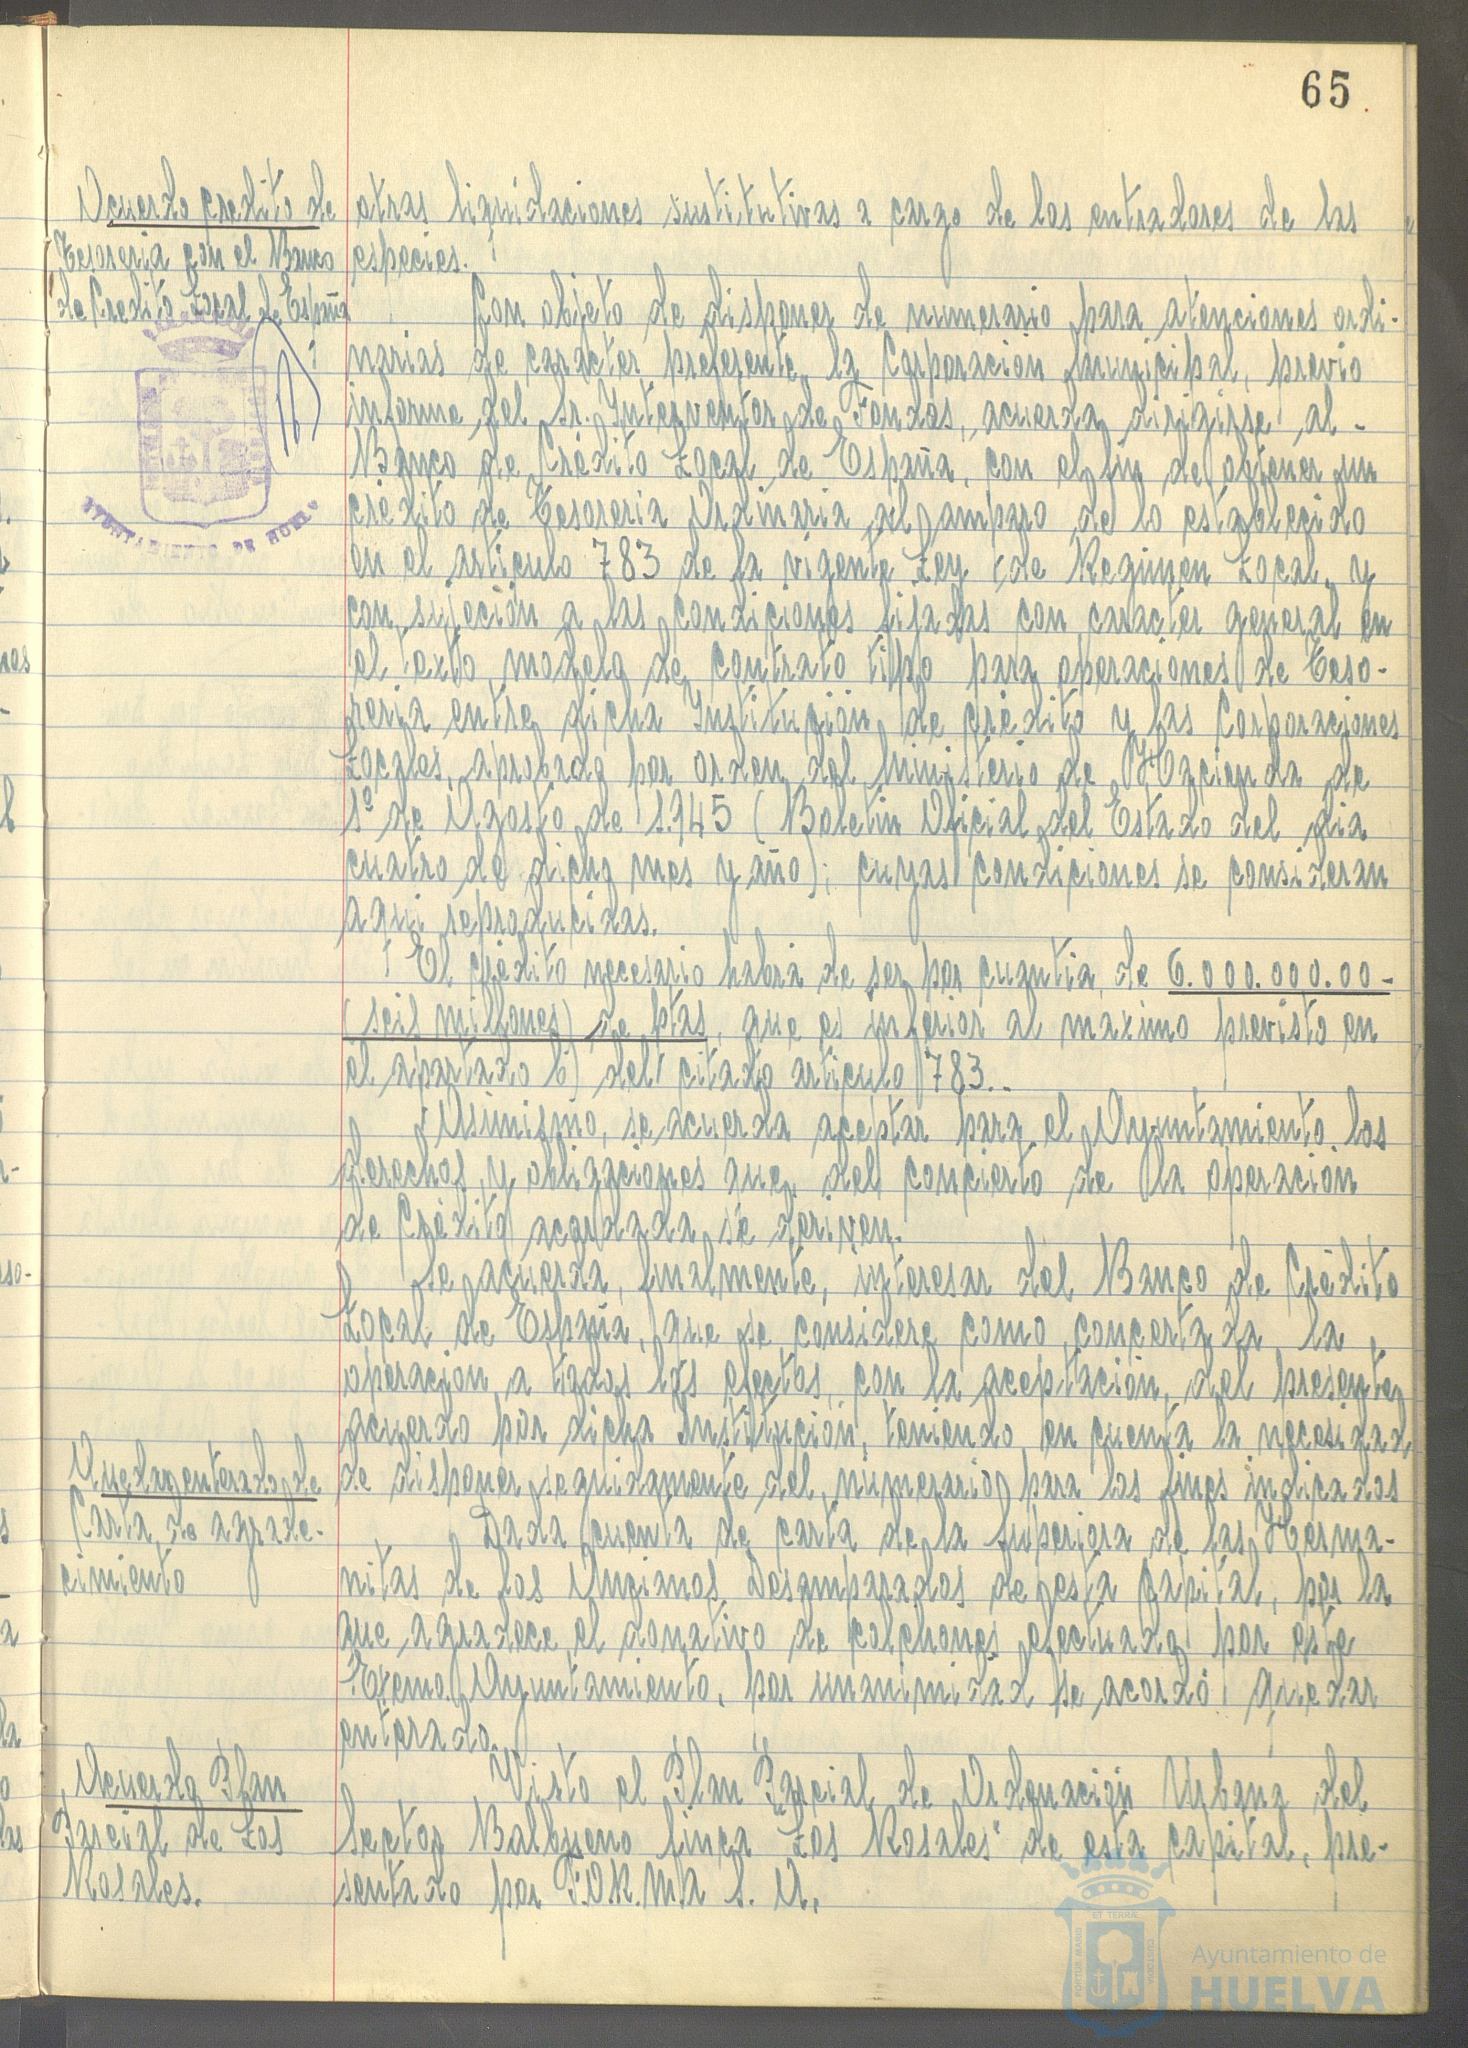 65
Acuerdo credito de
Tesoreria con el Banco
de Credito Local de España
AYUNTAMIENTO DE HUELVA
otras liquidaciones sustitutivas a cargo de los entradores de las
especies.
Con objeto de disponer de numerario para atenciones ordi-
narias de carácter preferente, la Corporación Municipal, previo
informe del Sr. Interventor de Fondos, acuerda dirigirse al
Banco de Crédito Local de España, con el fin de obtener un
crédito de Tesoreria Ordinaria al amparo de lo establecido
en el articulo 783 de la vigente Ley de Regimen Local, y
con sujeción a las condiciones fijadas con caracter general en
el texto modelo de contrato tipo para operaciones de Teso-
reria entre dicha Institución de crédito y las Corporaciones
Locales, aprobado por orden del Ministerio de Hacienda de
1º de Agosto de 1.945 (Boletin Oficial del Estado del dia
cuatro de dicho mes y año); cuyas condiciones se consideran
aqui reproducidas.
El crédito necesario habrá de ser por cuantia de 6.000.000.00-
(seis millones) de ptas, que es inferior al maximo previsto en
el apartado b) del citado articulo 783..
Asimismo, se acuerda aceptar para el Ayuntamiento los
derechos y obligaciones que del concierto de la operación
de Crédito acordada se deriven.
Se acuerda, finalmente, interesar del Banco de Crédito
Local de España, que se considere como concertada la
operación a todos los efectos, con la aceptación del presente
acuerdo por dicha Institución, teniendo en cuenta la necesidad
de disponer seguidamente del numerario para los fines indicados
Quedar enterado de
Carta de agrade-
cimiento
Dada cuenta de carta de la Superiora de las Herma-
nitas de los Ancianos Desamparados de esta Capital, por la
que agradece el donativo de colchones efectuado por este
Excmo. Ayuntamiento, por unanimidad se acordó: quedar
enterado.
Acuerdo Plan
Parcial de Los
Rosales.
Visto el Plan Parcial de Ordenación Urbana del
Sector Balbueno finca Los Rosales" de esta capital, pre-
sentado por F.O.R.M.A S. A.
PORTUS MARIS
ET TERRÆ
CUSTODIA
Ayuntamiento de
HUELVA